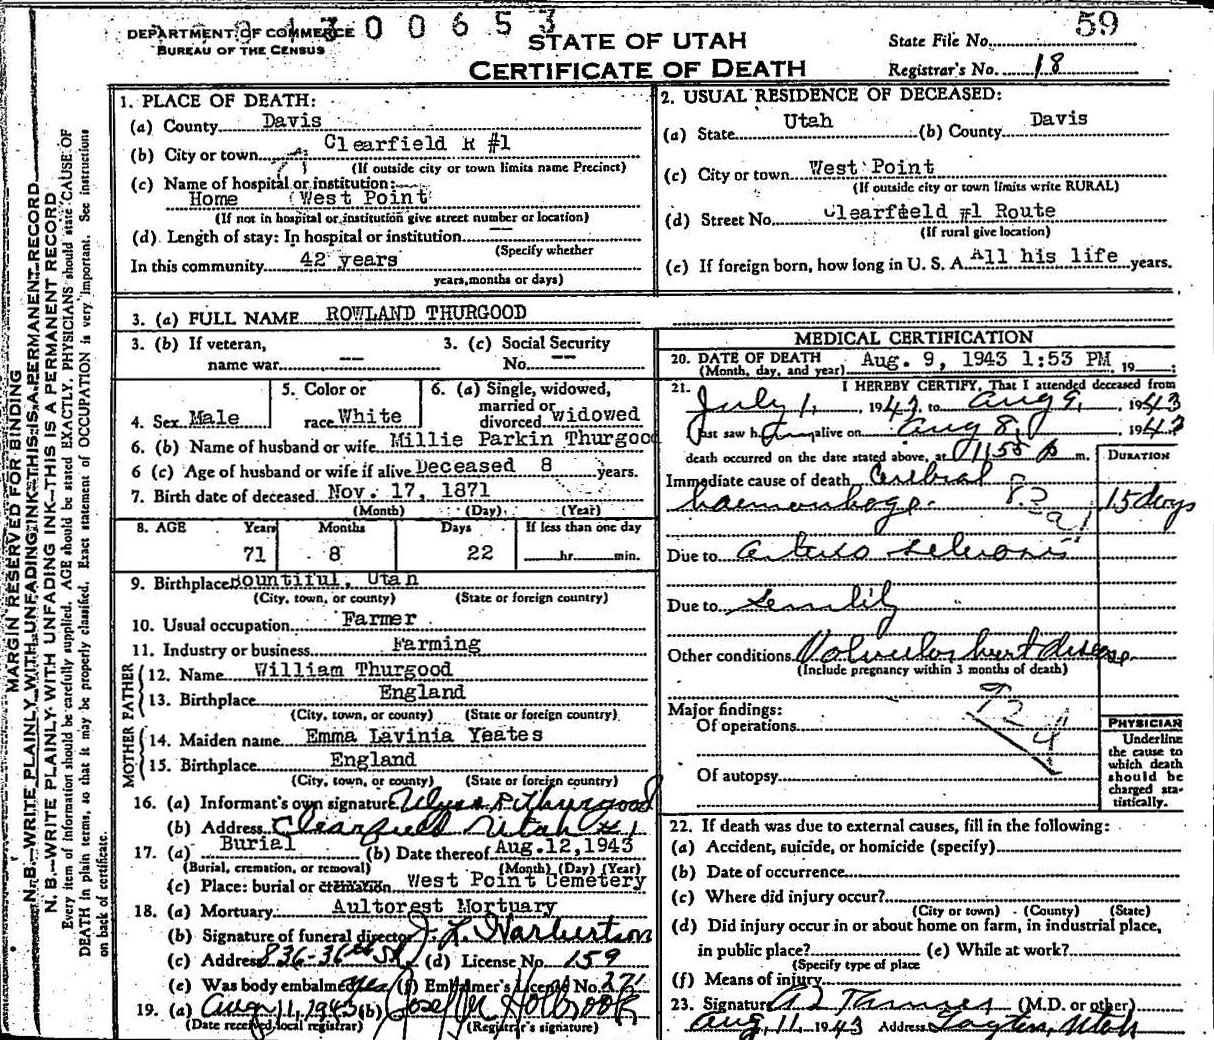 300653
59
DEPARTMENT OF COMMERCE
BUREAU OF THE CENSUS
STATE OF UTAH
CERTIFICATE OF DEATH
State File No.
Registrar's No. 18
MARGIN RESERVED FOR BINDING
N. B.—WRITE PLAINLY WITH UNFADING INK—THIS IS A PERMANENT RECORD
N. B.—WRITE PLAINLY WITH UNFADING INK—THIS IS A PERMANENT RECORD
Every item of information should be carefully supplied. AGE should be stated EXACTLY. PHYSICIANS should state CAUSE OF
DEATH in plain terms, so that it may be properly classified. Exact statement of OCCUPATION is very important. See instructions
on back of certificate.
1. PLACE OF DEATH:
(a) County Davis
(b) City or town Clearfield R #1
(If outside city or town limits name Precinct)
(c) Name of hospital or institution:
Home (West Point
(If not in hospital or institution give street number or location)
(d) Length of stay: In hospital or institution --
(Specify whether
In this community 42 years
years, months or days)
2. USUAL RESIDENCE OF DECEASED:
(a) State Utah (b) County Davis
(c) City or town West Point
(If outside city or town limits write RURAL)
(d) Street No. Clearfield #1 Route
(If rural give location)
(e) If foreign born, how long in U. S. A. All his life years.
3. (a) FULL NAME ROWLAND THURGOOD
3. (b) If veteran,
name war --
3. (c) Social Security
No. --
4. Sex Male
5. Color or
race White
6. (a) Single, widowed,
married or
divorced widowed
6. (b) Name of husband or wife Millie Parkin Thurgood
6 (c) Age of husband or wife if alive Deceased 8 years.
7. Birth date of deceased Nov. 17, 1871
(Month) (Day) (Year)
8. AGE Years Months Days If less than one day
71 8 22 hr. min.
9. Birthplace Bountiful, Utah
(City, town, or county) (State or foreign country)
10. Usual occupation Farmer
11. Industry or business Farming
FATHER
12. Name William Thurgood
13. Birthplace England
(City, town, or county) (State or foreign country)
MOTHER
14. Maiden name Emma Lavinia Yeates
15. Birthplace England
(City, town, or county) (State or foreign country)
16. (a) Informant's own signature Thurgood
(b) Address Clearfield Utah #1
17. (a) Burial (b) Date thereof Aug.12,1943
(Burial, cremation, or removal) (Month) (Day) (Year)
(c) Place: burial or cremation West Point Cemetery
18. (a) Mortuary Aultorest Mortuary
(b) Signature of funeral director J. L. Harbertson
(c) Address 836-36th St. (d) License No. 159
(e) Was body embalmed yes (f) Embalmer's License No. 271
19. (a) Aug 11, 1943 (b) Holbrook
(Date received local registrar) (Registrar's signature)
MEDICAL CERTIFICATION
20. DATE OF DEATH Aug. 9, 1943 1:53 PM 19
(Month, day, and year)
21. I HEREBY CERTIFY, That I attended deceased from
July 1, 1943, to Aug 9, 1943
last saw him alive on Aug 8, 1943
death occurred on the date stated above, at 1155 p m.
DURATION
Immediate cause of death Cerebral
haemorrhage. 83a1 15 days
Due to arterio sclerosis
Due to Senility
Other conditions Valvular heart disease
(Include pregnancy within 3 months of death)
92d
Major findings:
Of operations
Of autopsy
PHYSICIAN
Underline
the cause to
which death
should be
charged sta-
tistically.
22. If death was due to external causes, fill in the following:
(a) Accident, suicide, or homicide (specify)
(b) Date of occurrence
(c) Where did injury occur?
(City or town) (County) (State)
(d) Did injury occur in or about home on farm, in industrial place,
in public place? (e) While at work?
(Specify type of place
(f) Means of injury
23. Signature (M.D. or other)
Aug, 11 1943 Address Layton, Utah